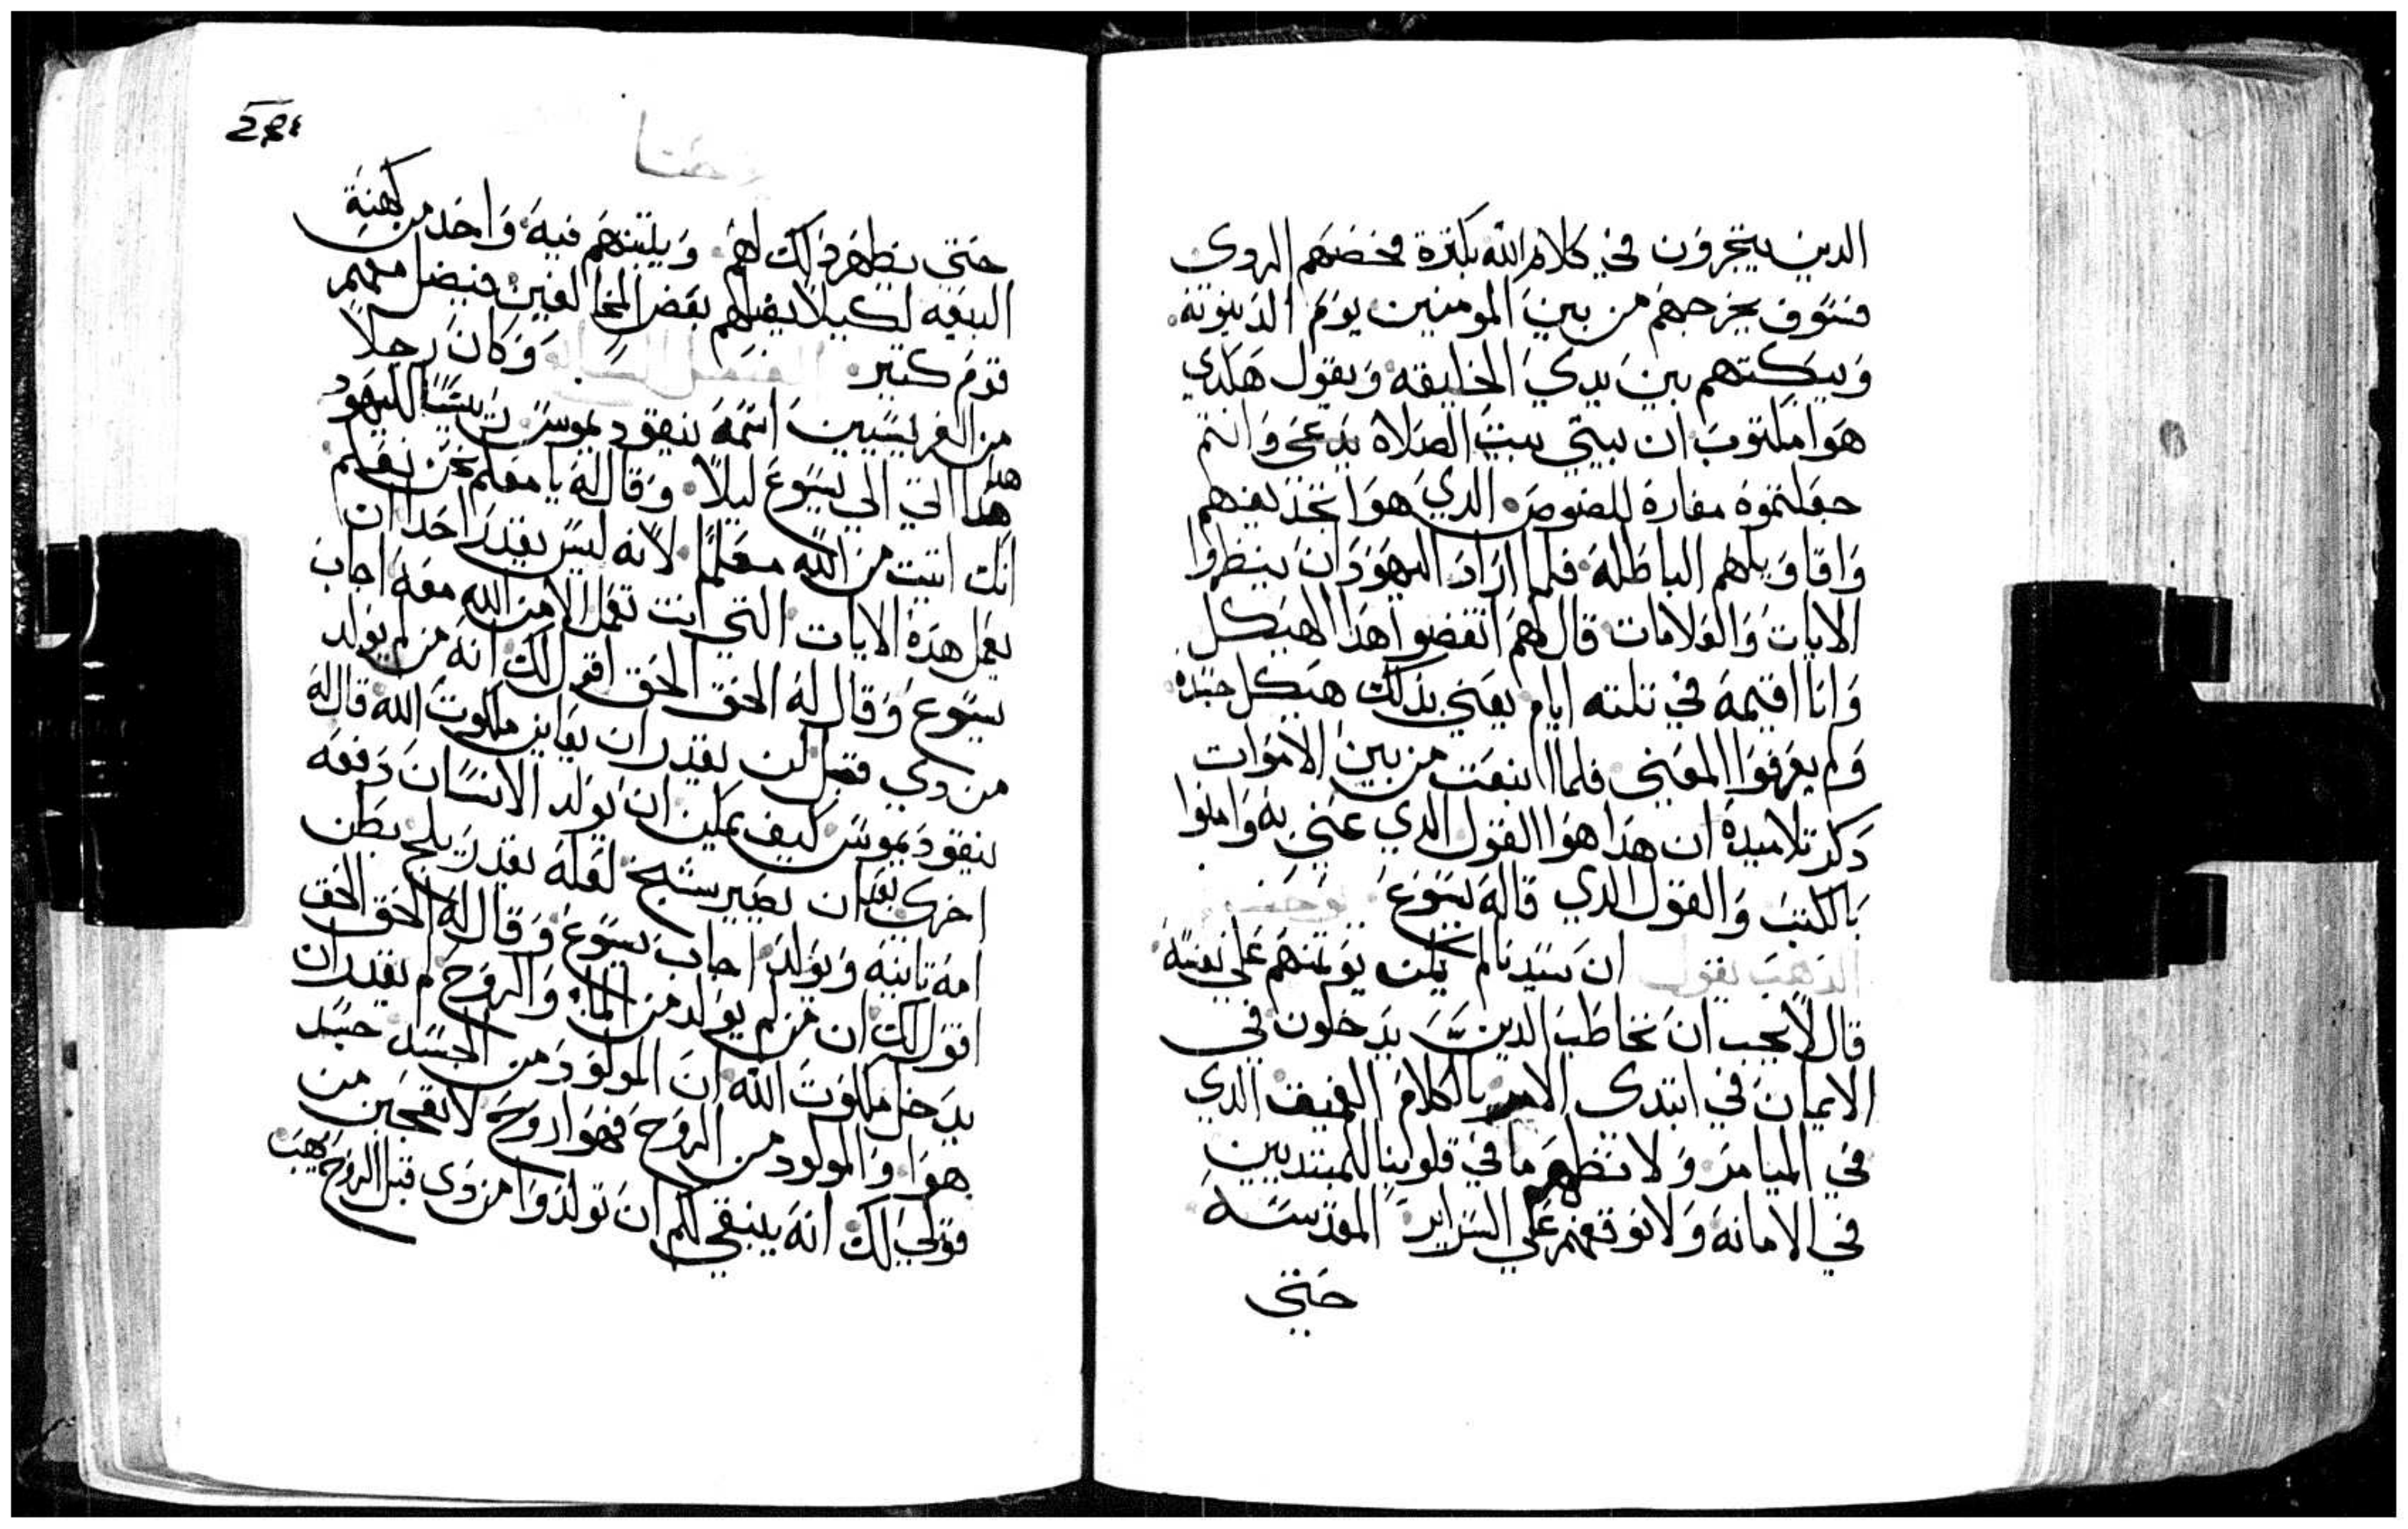 الدين يتجرون في كلام الله بكترة فخضهم الردي
فسوف يخرجهم من بين المومنين يوم الدينونة
وَيبكتهم بين يدي الخليقه وَيقول هكدي
هوَا مكتوب ان بيتي بيت الصلاة يدعي وَانتم
جعلتموه مغارة للصوص الدي هوَا تخذيعهم
وَاقاوَيلهم الباطله فلما ارَادَ اليهوَد ان ينظروا
الايات وَالعَلامات قال لهم انقضوا هدا الهيكل
وَانا اقيمه في تلته ايام يعني بدلك هيكل جسده
وَلم يعرفوَا المعني فلما انبعت من بين الاموَات
دكر تلاميدة ان هدا هوَا القول الدي عني به وَامنوا
بالكتب وَالقول الدي قاله يسوع يوحنا
الدهب يقول ان سيدنا لم يكن يوَمنهم علي نفسه
قال لا يجب ان نخاطب الدين يدخلون في
الايمان في ابتدي الامر بالكلام العميق الدي
في الميامر وَلا نظهر ما في قلوبنا للمبتديين
في الامانة وَلا نوقفهم علي السراير المقدسه
حتي
يوحنا
حتي نظهر دالك لهم وَيثبتهم فيه وَاحد من كهنة
البيعه لكيلا يضلهم بعض المخالفين فيضل معهم
قوم كتير الفصل السابع وَكان رجلا
من الفريسيين اسمه نيقوديموس رييسا لليهود
هدا اتي الي يسوع ليلا وَقال له يا معلم نحن نعلم
انك اتيت من الله معلما لانه ليس يقدر احدا ان
يعمل هده الايات التي انت تعمل الا من الله معه اجاب
يسوع وَقال له الحق الحق اقول لك انه من لم يولد
من دي قبل لن يقدر ان يعاين ملكوت الله قال له
نيقوديموس كيف يمكن ان يولد الانسان دفعه
اخري بعد ان يصير شيخ لعله يقدر يلج بطن
امه تانيه وَيولد اجاب يسوع وَقال له الحق الحق
اقول لك ان من لم يولد من الما وَالروح لم يقدر ان
يدخل ملكوت الله ان المولود من الجسد جسد
هوَا وَالمولود من الروح فهوَا روح لا تعجبن من
قولي لك انه ينبغي لكم ان تولدوا من دي قبل الروح يهب